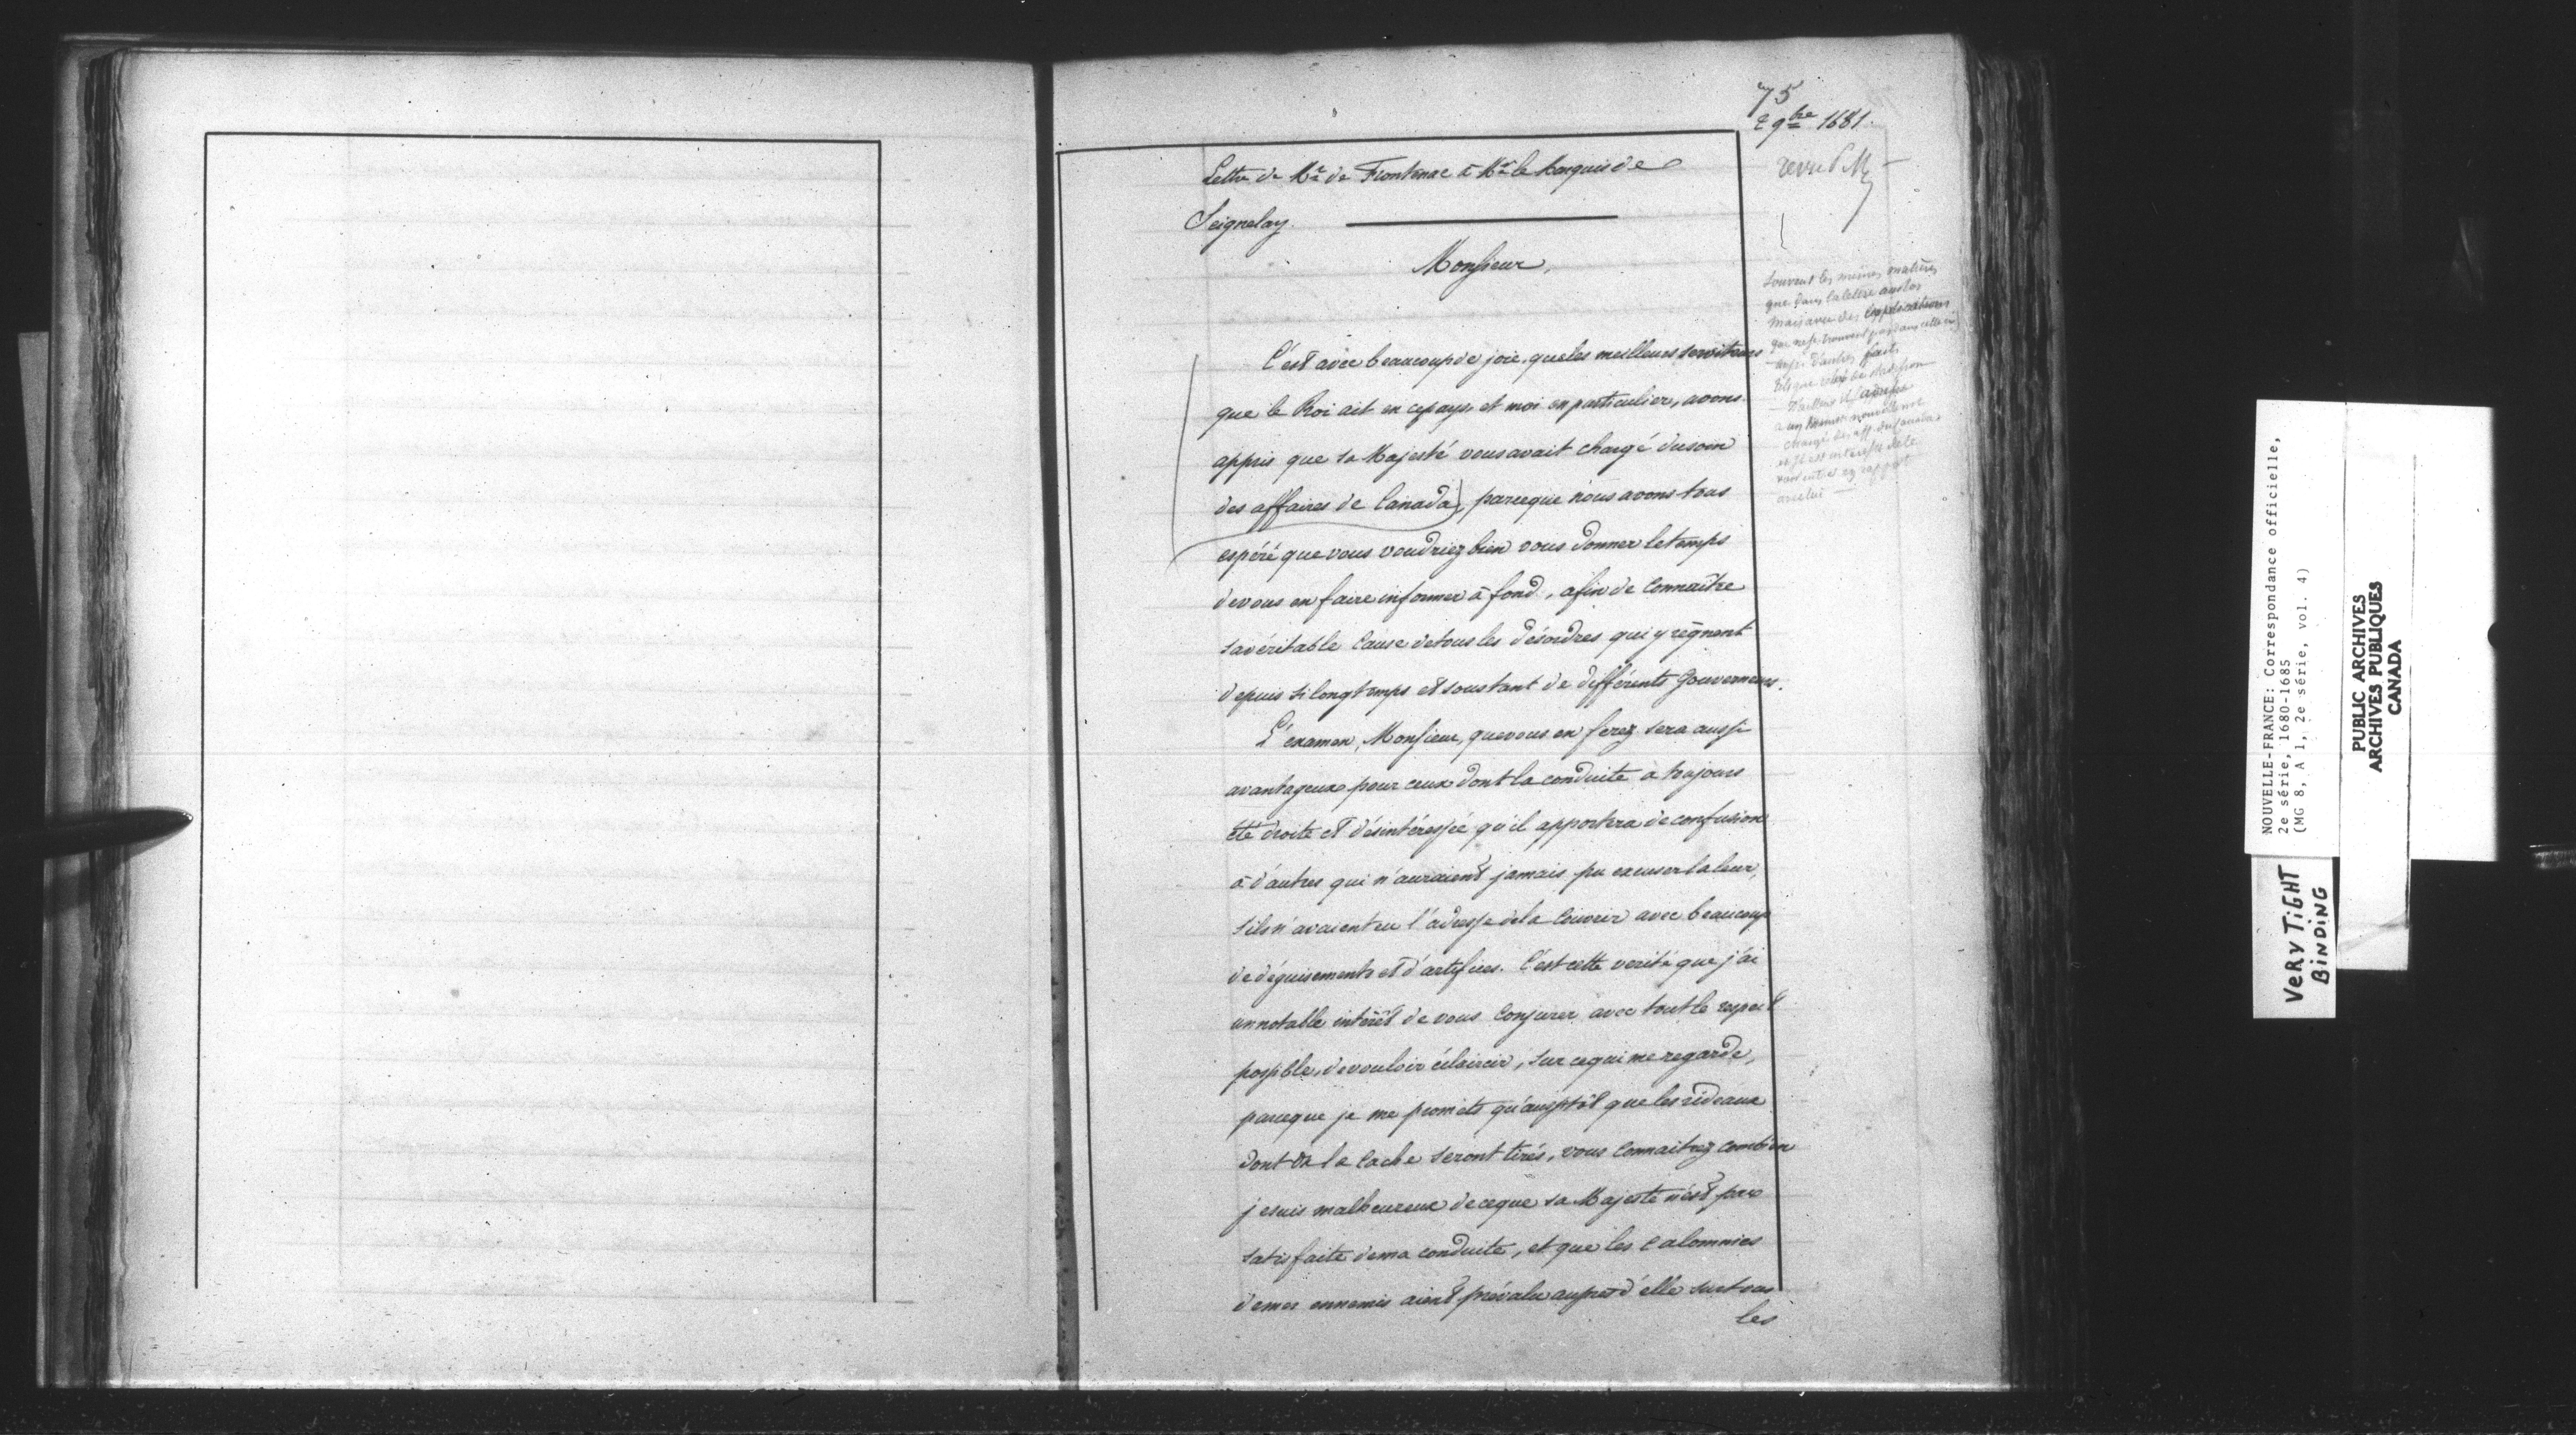 75
2 9bre 1681.
revu P. M.
Lettre de Mr de Frontenac à Mr le Marquis de
Seignelay.
Monsieur,
C'est avec beaucoup de joie, que les meilleurs serviteurs
que le Roi ait en ce pays, et moi en particulier, avons
appris que sa Majesté vous avait chargé du soin
des affaires de Canada), parceque nous avons tous
espéré que vous voudriez bien vous donner le temps
de vous en faire informer à fond, afin de connaître
la véritable cause de tous les désordres qui y règnent
depuis si longtemps et sous tant de différents Gouverneurs.
L'examen, Monsieur, que vous en ferez sera aussi
avantageux pour ceux dont la conduite a toujours
été droite et désintéressée qu'il apportera de confusion
à d'autres qui n'auraient jamais pu excuser la leur,
s'ils n'avaient eu l'adresse de la couvrir avec beaucoup
de déguisements et d'artifices. C'est cette verité que j'ai
un notable intérêt de vous conjurer avec tout le respect
possible, de vouloir éclaircir, sur ce qui me regarde,
parceque je me promets qu'aussitôt que les rideaux
dont on la cache seront tirés, vous connaitrez combien
je suis malheureux de ceque sa Majesté n'est pas
satisfaite de ma conduite, et que les calomnies
de mes ennemis aient prévalu auprès d'elle sur tous
les
Souvent les mêmes matières
que dans la lettre au Roi
mais avec des explications
qui ne se trouvent pas dans celle ci
d'autres faits
chargé des aff. du Canada
avec lui
NOUVELLE-FRANCE: Correspondance officielle,
2e série, 1680-1685
(MG 8, A 1, 2e série, vol. 4)
PUBLIC ARCHIVES
ARCHIVES PUBLIQUES
CANADA
VERY TIGHT
BINDING